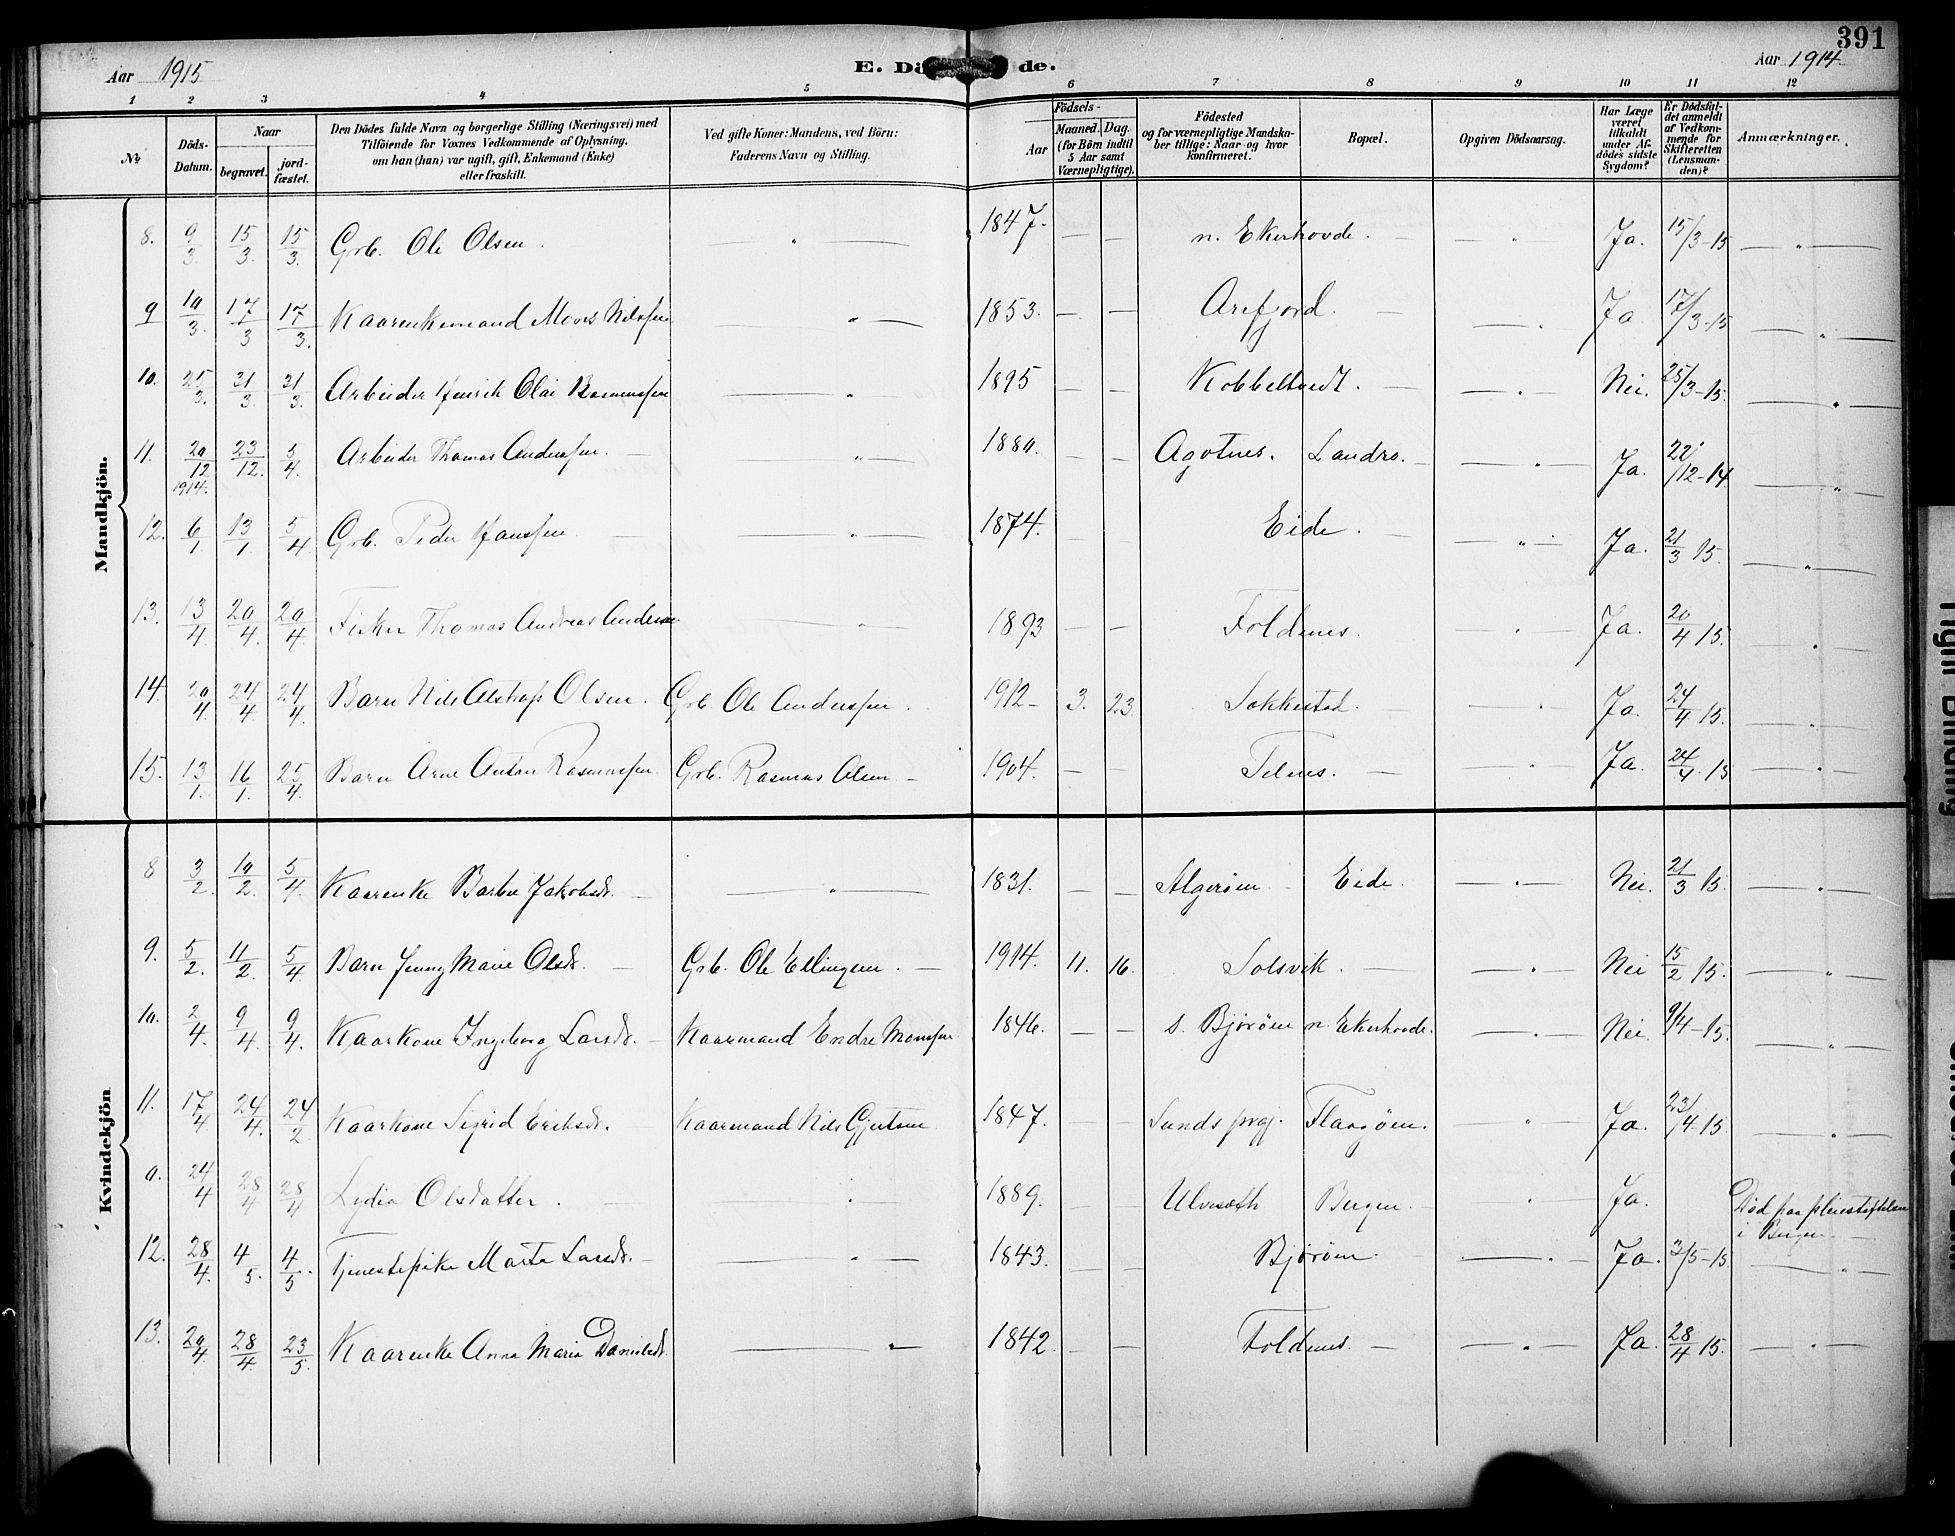 391
Aar 1915 E. Dö de. Aar 1914
1 2 3 4 5 6 7 8 9 10 11 12
№ Döds-Datum. Naar begravet. jord-fæstet. Den Dödes fulde Navn og borgerlige Stilling (Næringsvei) med Tilföiende for Voxnes Vedkommende af Oplysning, om han (hun) var ugift, gift, Enkemand (Enke) eller fraskilt. Ved gifte Koner: Mandens, ved Börn: Faderens Navn og Stilling. Födsels- Aar Maaned. Dag. (for Börn indtil 5 Aar samt Værnepligtige). Födested og for værnepligtige Mandskaber tillige: Naar og hvor konfirmeret. Bopæl. Opgiven Dödsaarsag. Har Læge været tilkaldt under Afdödes sidste Sygdom? Er Dödsfaldet anmeldt af Vedkommende for Skifteretten (Lensmanden)? Anmærkninger.
Mandkjön.
8. 9/3 15/3 15/3 Grb. Ole Olsen. " 1847. — — n. Ekerhovde. — " — Ja. 15/3-15 — " —
9 10/3. 17/3 17/3. Kaarenkemand Mons Nilssen — " — 1853. — — Arefjord. — " — Ja 17/3-15 — " —
10. 25/3. 31/3. 31/3. Arbeider Henrik Olai Rasmussen — " — 1895 — — Kobbeltvedt. — " — Nei. 25/3-15. — " —
11. 20/12 1914. 23/12. 5/4. Arbeider Thomas Anderssen. — " — 1880. — — Agotnes. Landro. — " — Ja. 22/12-14 — " —
12. 6/1 13/1 5/4 Grb. Peder Hanssen — " — 1874. — — Eide. — " — Ja. 21/3 15. — " —
13. 13/4 20/4. 20/4 Fisker Thomas Andreas Anderssen — " — 1893 — — Foldenes. — " — Ja. 20/4 15. — " —
14. 20/4 24/4 24/4. Barn Nils Alstrup Olsen. Grb. Ole Anderssen. 1912- 3. 23 Sekkestad. — " — Ja. 24/4 15. — " —
15. 13/1. 16/1. 25/4. Barn Arne Anton Rasmussen. Grb. Rasmus Olsen — 1904. — — Telnes. — " — Ja. 24/4 15 — " —
Kvindekjön
8 3/2. 10/2. 5/4. Kaarenke Barbro Jakobsdt. — " — 1831. — — Algerøen Eide. — " — Nei. 21/3 15. — " —
9. 5/2. 11/2. 5/4 Barn Jenny Marie Olsdt. — Grb. Ole Ellingsen. — 1914. 11. 16. Solsvik. — " — Nei 15/2 15. — " —
10. 2/4. 9/4. 9/4. Kaarkone Ingeborg Larsdt. — Kaarmand Endre Monsen 1846. — — s. Bjørøen n. Ekerhovde. — " — Nei 9/4-15. — " —
11. 17/4 24/4. 24/2 Kaarkone Sigrid Eriksdt. — Kaarmand Nils Gjertsen 1847. — — Sunds prgj. Flaagøen. " — Ja. 23/4-15. — " —
0. 24/4 28/4 28/4 Lydia Olsdatter. — " 1889. — — Ulvesæth Bergen. " — Ja. Død paa pleiestiftelsen i Bergen.
12. 28/4. 4/5. 4/5. Tjenestepike Marta Larsdt. — " — 1843. — — Bjørøen. — " — Ja. 3/5-15 — " —
13. 20/4. 28/4 23/5. Kaarenke Anna Maria Danielsdt. — " — 1842. — — Foldenes. — " — Ja. 28/4 15. — " —